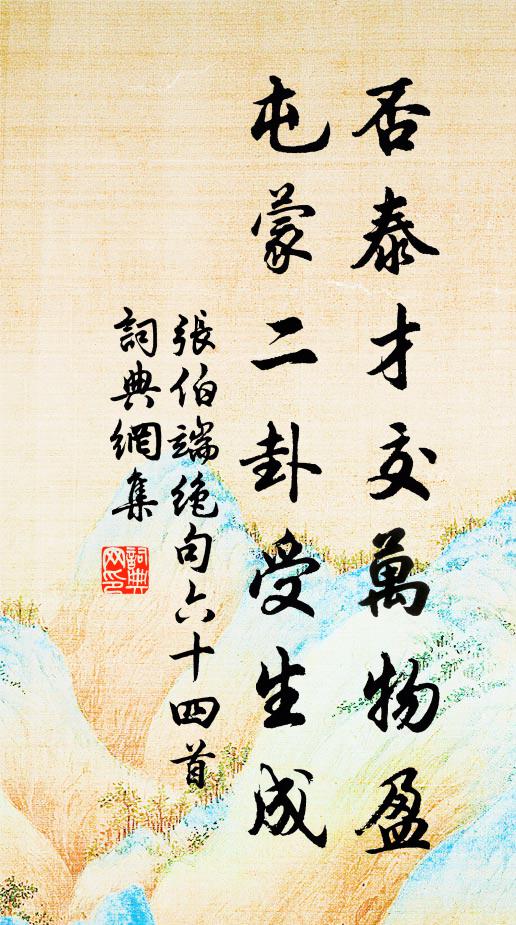 否泰才交萬物盈
屯蒙二卦受生成
張伯端絶句六十四首
詞典網集
詞典網印